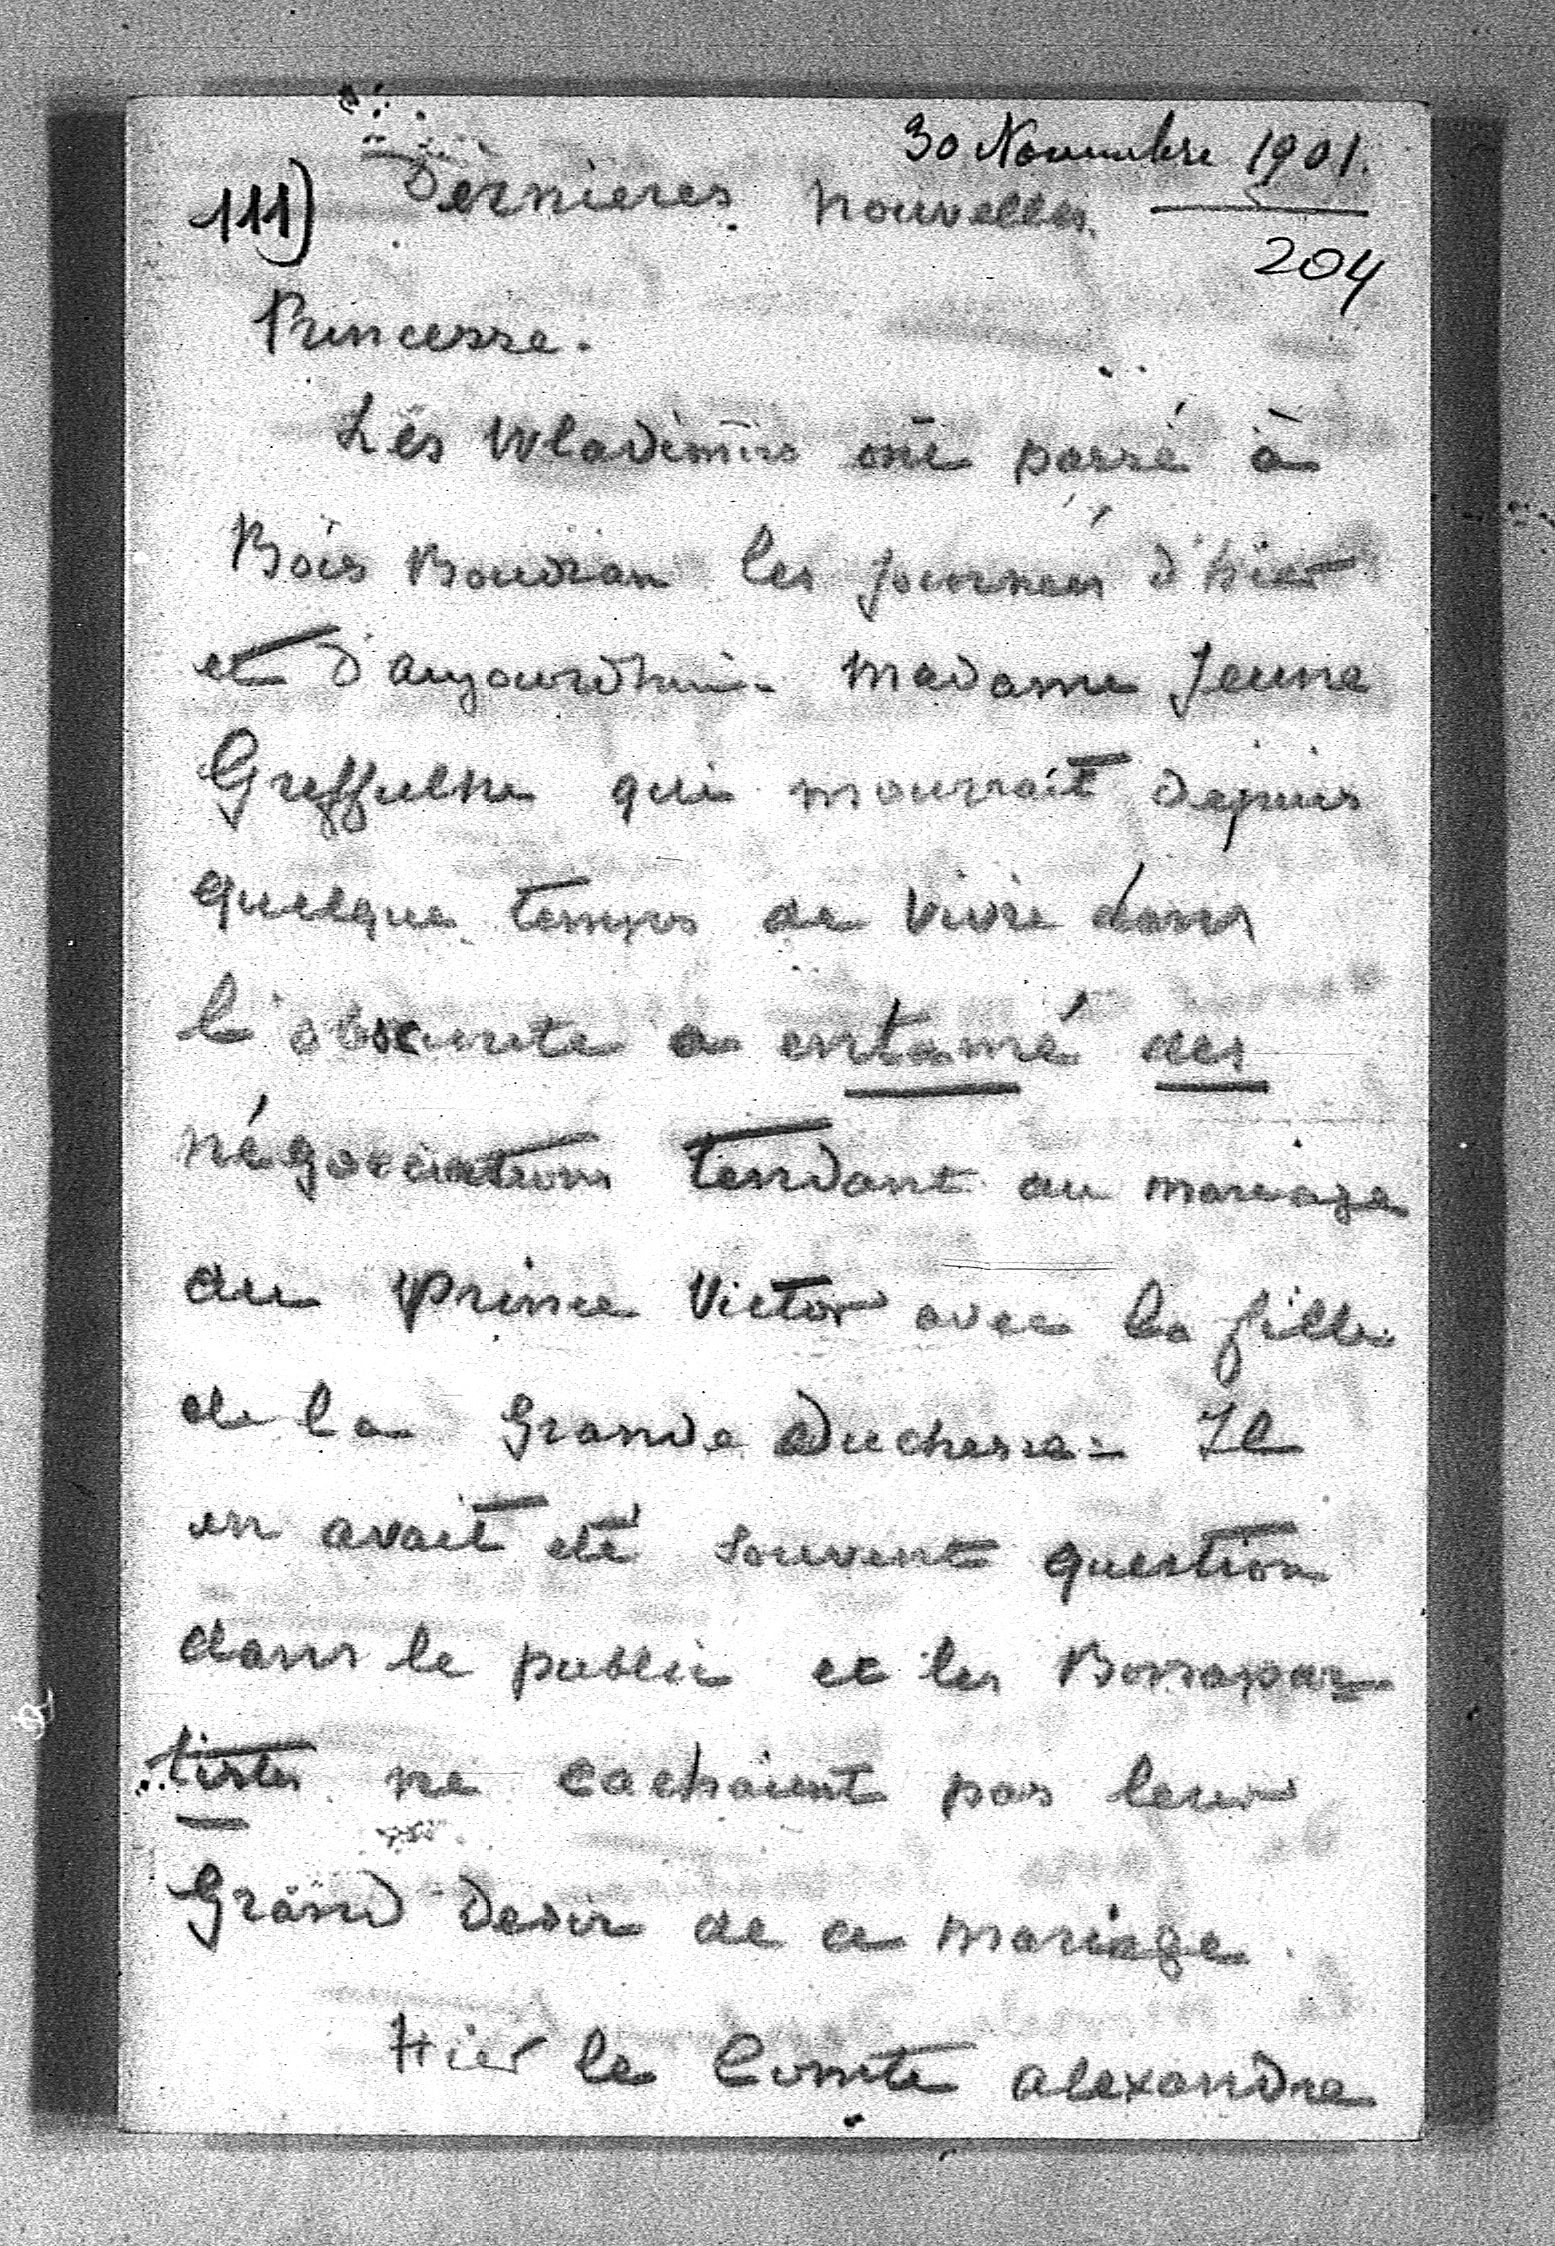 30 Novembre 1901.
111) Dernieres nouvelles.
204
Princesse.
Les Wladimirs ont passé à
Bois Boudran les journées d'hier
et d'aujourdhui. Madame Jeune
Greffulhe qui mourrait depuis
quelque temps de vivre dans
l'obscurite a entamé des
négociations tendant au mariage
du Prince Victor avec la fille
de la Grande Duchesse - Il
en avait eté souvent question
dans le public et les Bonapar-
tistes ne cachaient pas leur
Grand desir de ce mariage.
Hier le Comte alexandre